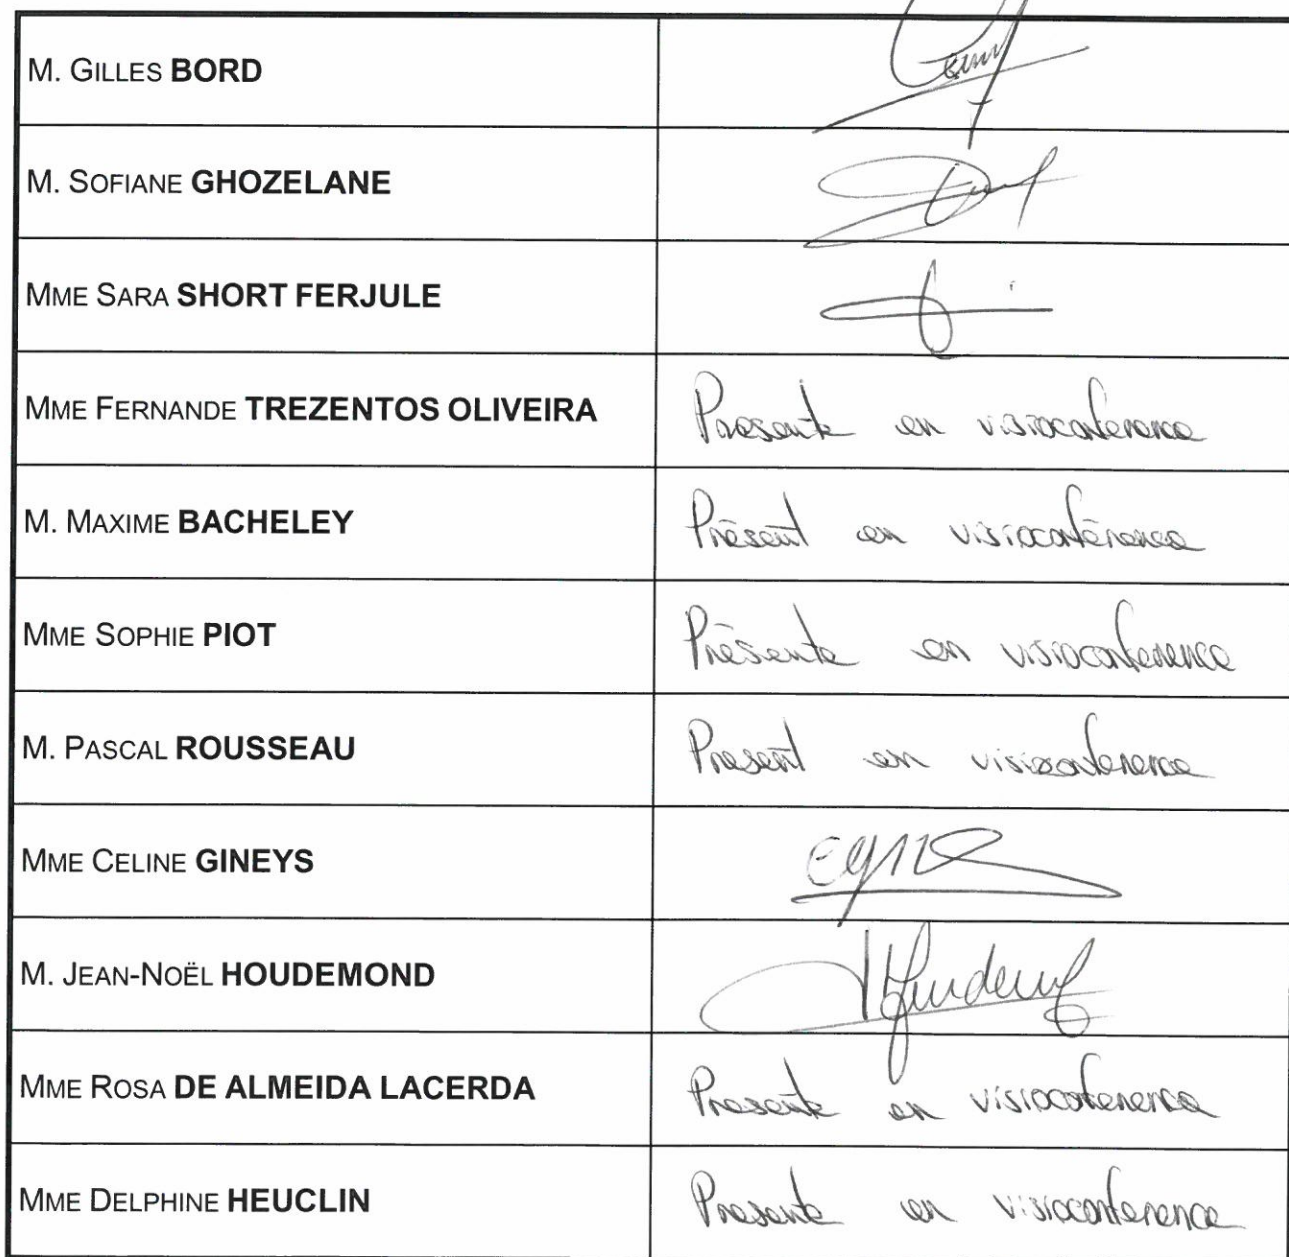 M. GILLES BORD
M. SOFIANE GHOZELANE
MME SARA SHORT FERJULE
MME FERNANDE TREZENTOS OLIVEIRA Presente en visioconference
M. MAXIME BACHELEY Présent en visioconférence
MME SOPHIE PIOT Présente en visioconference
M. PASCAL ROUSSEAU Present en visioconference
MME CELINE GINEYS
M. JEAN-NOËL HOUDEMOND
MME ROSA DE ALMEIDA LACERDA Presente en visioconference
MME DELPHINE HEUCLIN Presente en visioconference